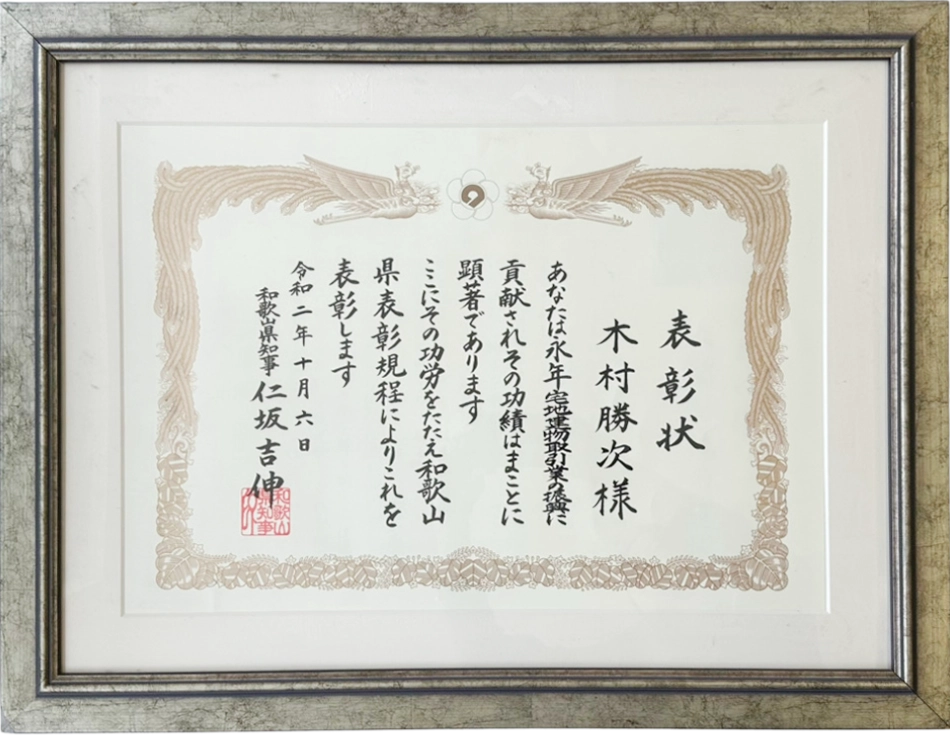 表彰状
木村勝次様
あなたは永年宅地建物取引業の振興に
貢献されその功績はまことに
顕著であります
ここにその功労をたたえ和歌山
県表彰規程によりこれを
表彰します
令和二年十月六日
和歌山県知事 仁坂吉伸